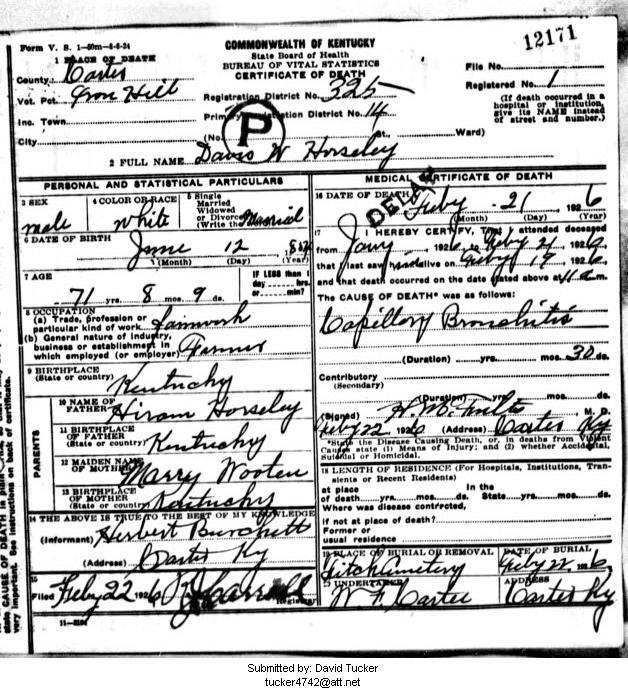 12171
Form V. S. 1-50m-6-6-24
COMMONWEALTH OF KENTUCKY
State Board of Health
BUREAU OF VITAL STATISTICS
CERTIFICATE OF DEATH
1 PLACE OF DEATH
County Carter
Vot. Pct. Iron Hill
Inc. Town
City
Registration District No. 325
Primary Registration District No. 14
(No. St. Ward)
File No.
Registered No. 1
(If death occurred in a hospital or institution, give its NAME instead of street and number.)
P
2 FULL NAME Davis W Horseley
PERSONAL AND STATISTICAL PARTICULARS
3 SEX male
4 COLOR OR RACE white
5 Single Married Widowed or Divorced (Write the word) Married
6 DATE OF BIRTH June 12
(Month) (Day) (Year)
7 AGE 71 yrs. 8 mos. 9 ds.
IF LESS than 1 day hrs. or min?
8 OCCUPATION
(a) Trade, profession or particular kind of work farmwork
(b) General nature of industry, business or establishment in which employed (or employer) Farmer
9 BIRTHPLACE (State or country) Kentucky
PARENTS
10 NAME OF FATHER Hiram Horseley
11 BIRTHPLACE OF FATHER (State or country) Kentucky
12 MAIDEN NAME OF MOTHER Marry Wooten
13 BIRTHPLACE OF MOTHER (State or country) Kentucky
14 THE ABOVE IS TRUE TO THE BEST OF MY KNOWLEDGE
(Informant) Herbert Burchett
(Address) Carter Ky
15
Filed Feby 22 1926
Registrar
11-3184
MEDICAL CERTIFICATE OF DEATH
DELAY
16 DATE OF DEATH Feby 21 1926
(Month) (Day) (Year)
17 I HEREBY CERTIFY, That I attended deceased
from Jany 1926 to Feby 21 1926,
that I last saw him alive on Feby 19 1926,
and that death occurred on the date stated above at 11 a m.
The CAUSE OF DEATH* was as follows:
Capillary Bronchitis
(Duration) yrs. mos. 30 ds.
Contributory
(Secondary)
(Duration) yrs. mos. ds.
(Signed) M. D.
Feby 22 1926 (Address) Carter Ky
*State the Disease Causing Death, or, in deaths from Violent Causes state (1) Means of Injury; and (2) whether Accidental, Suicidal or Homicidal.
18 LENGTH OF RESIDENCE (For Hospitals, Institutions, Transients or Recent Residents)
At place of death yrs. mos. ds. In the State yrs. mos. ds.
Where was disease contracted,
if not at place of death?
Former or usual residence
19 PLACE OF BURIAL OR REMOVAL Fitch Cemetery
DATE OF BURIAL Feby 22 1926
UNDERTAKER W F Carter
ADDRESS Carter Ky
state CAUSE OF DEATH in plain
very important. See instructions on back of certificate.
Submitted by: David Tucker
tucker4742@att.net